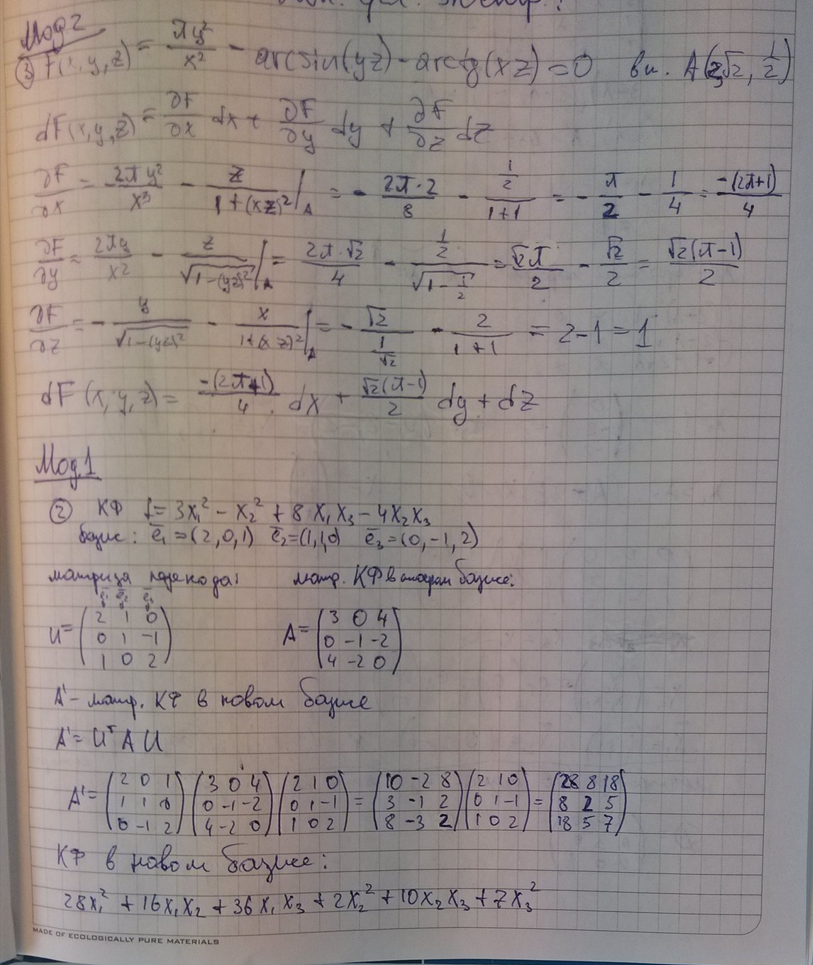 Мод 2
③ F(x,y,z) = πy²/x² - arcsin(yz) - arctg(xz) = 0 в т. A(2,√2, 1/2)
dF(x,y,z) = ∂F/∂x dx + ∂F/∂y dy + ∂F/∂z dz
∂F/∂x = 2πy²/x³ - z/(1+(xz)²)|A = - 2π·2/8 - (1/2)/(1+1) = - π/2 - 1/4 = -(2π+1)/4
∂F/∂y = 2πy/x² - z/√(1-(yz)²)|A = 2π·√2/4 - (1/2)/√(1-1/2) = √2π/2 - √2/2 = √2(π-1)/2
∂F/∂z = - y/√(1-(yz)²) - x/(1+(xz)²)|A = - √2/(1/√2) - 2/(1+1) = 2-1 = 1
dF(x,y,z) = -(2π+1)/4 dx + √2(π-1)/2 dy + dz
Мод 1
② КФ f = 3x₁² - x₂² + 8x₁x₃ - 4x₂x₃
базис: e̅₁ = (2,0,1) e̅₂ = (1,1,0) e̅₃ = (0,-1,2)
матрица перехода: матр. КФ в старом базисе:
e̅₁ e̅₂ e̅₃
U = (2 1 0 / 0 1 -1 / 1 0 2) A = (3 0 4 / 0 -1 -2 / 4 -2 0)
A' - матр. КФ в новом базисе
A' = Uᵀ A U
A' = (2 0 1 / 1 1 0 / 0 -1 2) (3 0 4 / 0 -1 -2 / 4 -2 0) (2 1 0 / 0 1 -1 / 1 0 2) = (10 -2 8 / 3 -1 2 / 8 -3 2) (2 1 0 / 0 1 -1 / 1 0 2) = (28 8 18 / 8 2 5 / 18 5 7)
КФ в новом базисе:
28x₁² + 16x₁x₂ + 36x₁x₃ + 2x₂² + 10x₂x₃ + 7x₃²
MADE OF ECOLOGICALLY PURE MATERIALS